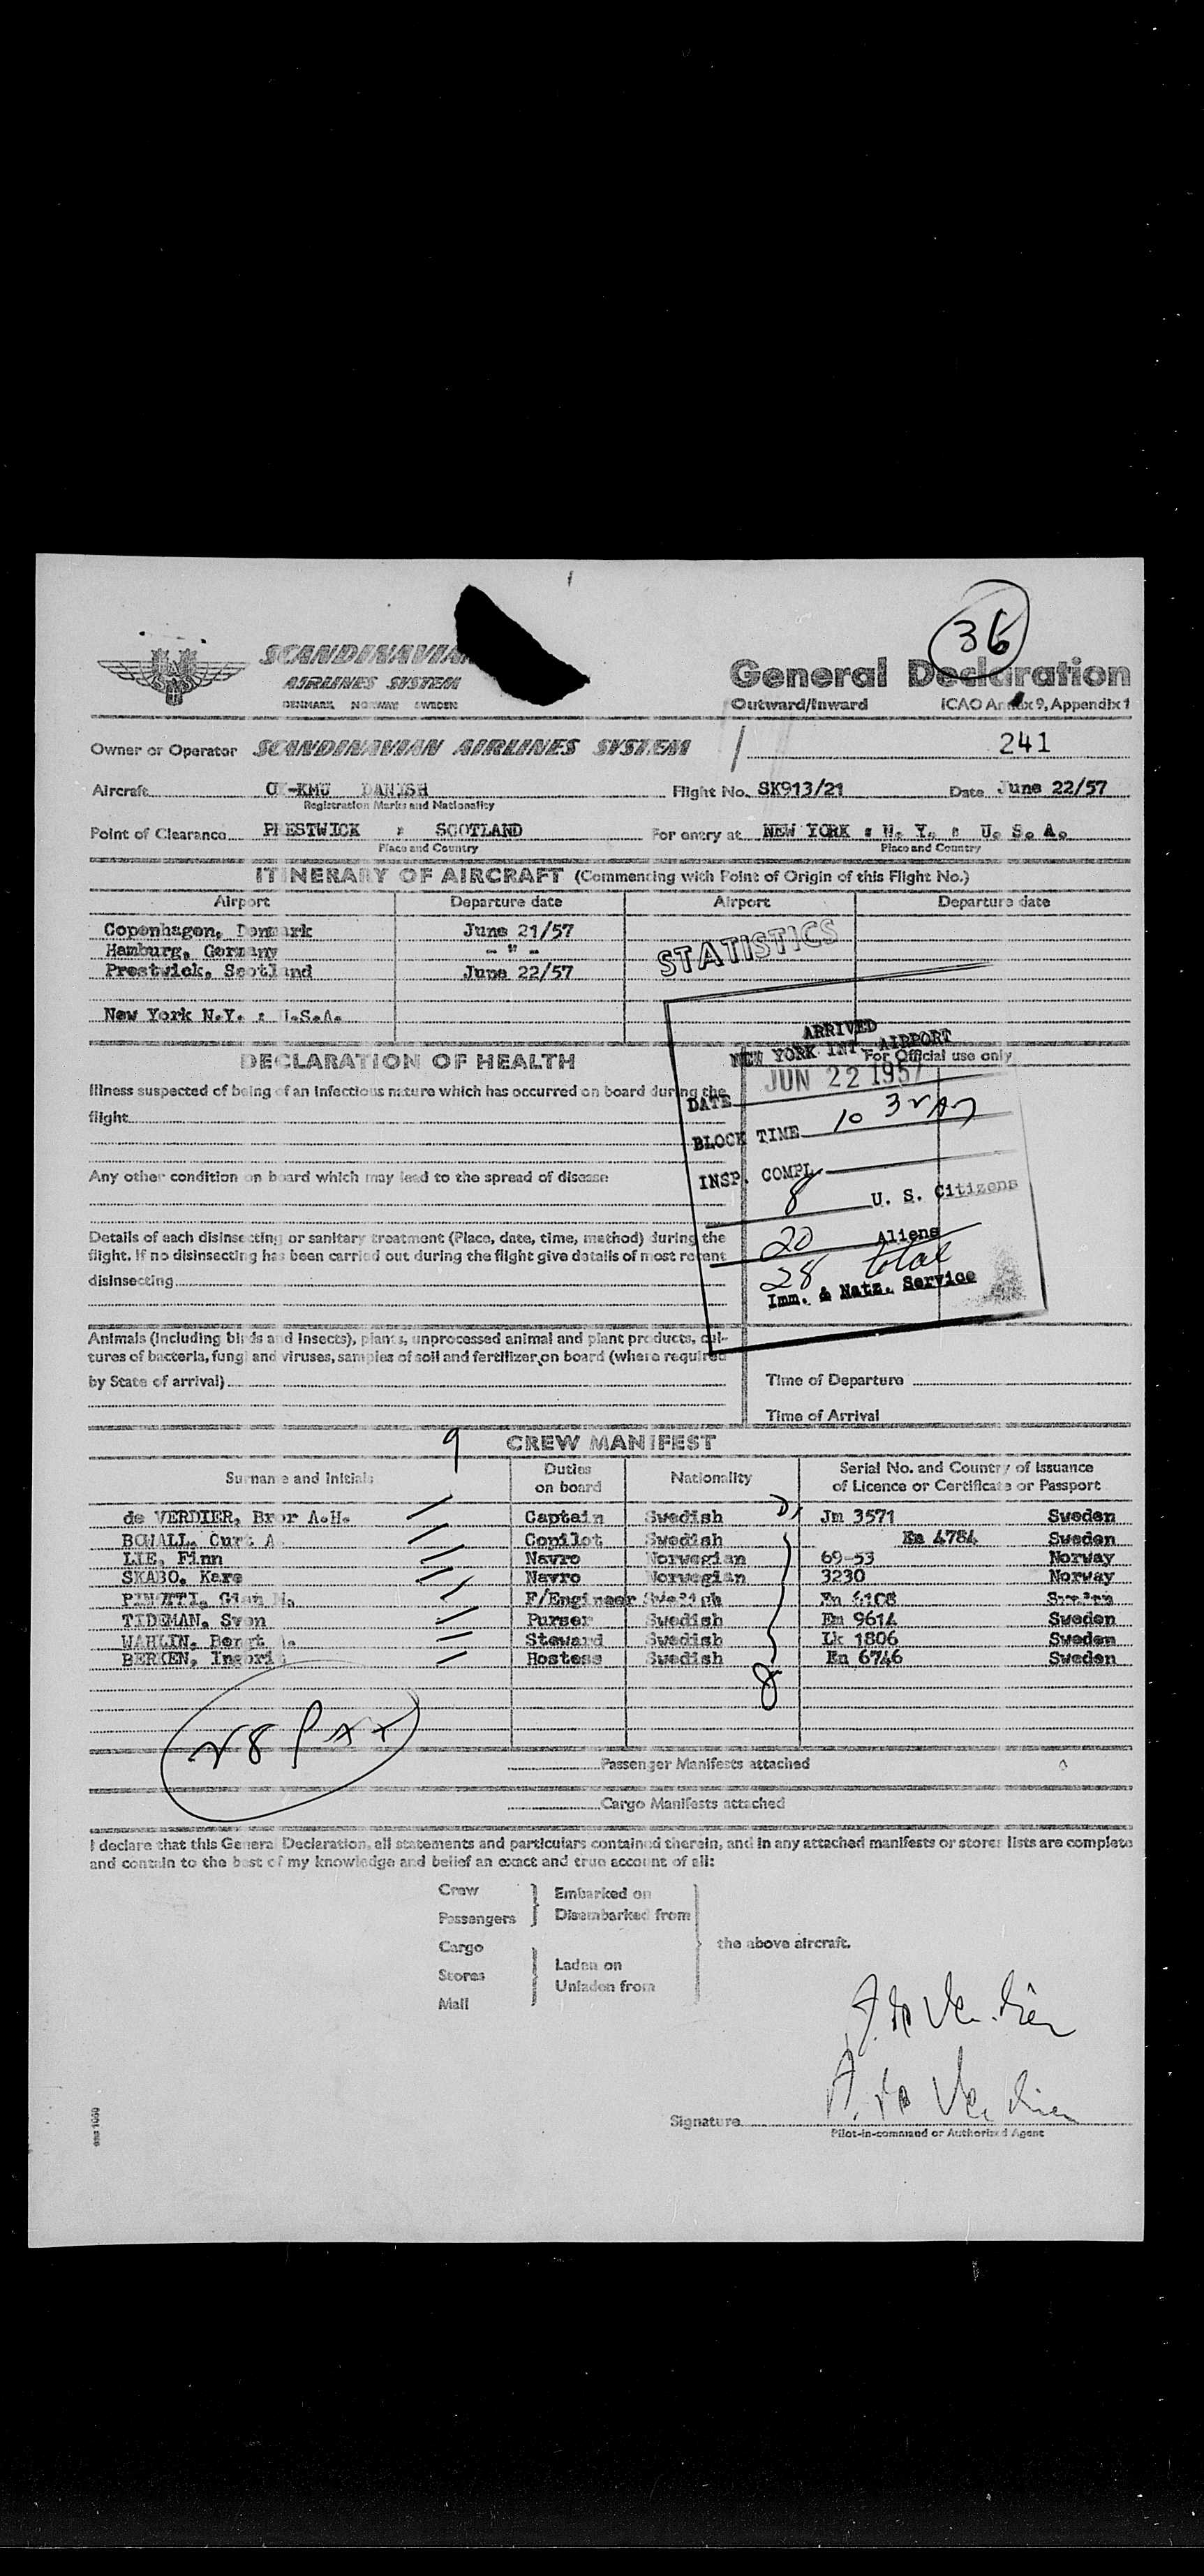 36
SCANDINAVIAN
AIRLINES SYSTEM
DENMARK NORWAY SWEDEN
General Declaration
Outward/Inward ICAO Annex 9, Appendix 1
Owner or Operator SCANDINAVIAN AIRLINES SYSTEM 241
Aircraft -KMU DANISH Flight No. SK913/21 Date June 22/57
Registration Marks and Nationality
Point of Clearance PRESTWICK : SCOTLAND For entry at NEW YORK : N. Y. : U. S. A.
Place and Country Place and Country
ITINERARY OF AIRCRAFT (Commencing with Point of Origin of this Flight No.)
Airport Departure date Airport Departure date
Copenhagen, Denmark June 21/57
Hamburg, Germany - " -
Prestwick, Scotland June 22/57
STATISTICS
New York N.Y. : U.S.A.
ARRIVED
NEW YORK INT. AIRPORT
DATE JUN 22 1957
BLOCK TIME 10
INSP. COMPL.
8 U. S. Citizens
20 Aliens
28 total
Imm. & Natz. Service
For Official use only
DECLARATION OF HEALTH
Illness suspected of being of an infectious nature which has occurred on board during the
flight
Any other condition on board which may lead to the spread of disease
Details of each disinsecting or sanitary treatment (Place, date, time, method) during the
flight. If no disinsecting has been carried out during the flight give details of most recent
disinsecting
Animals (including birds and insects), plants, unprocessed animal and plant products, cul-
tures of bacteria, fungi and viruses, samples of soil and fertilizer, on board (where required
by State of arrival)
Time of Departure
Time of Arrival
9 CREW MANIFEST
Surname and Initials Duties on board Nationality Serial No. and Country of Issuance of Licence or Certificate or Passport
de VERDIER, Bror A.H. Captain Swedish Jm 3571 Sweden
BOWALL, Curt A. Copilot Swedish Em 4784 Sweden
LIE, Finn Navro Norwegian 69-53 Norway
SKABO, Kare Navro Norwegian 3230 Norway
PINOTTI, Gian M. F/Engineer Swedish Sweden
TIDEMAN, Sven Purser Swedish Em 9614 Sweden
WAHLIN, Bengt Steward Swedish Lk 1806 Sweden
BERKEN, Ingbrit Hostess Swedish En 6746 Sweden
8
28 Pax
Passenger Manifests attached
Cargo Manifests attached
I declare that this General Declaration, all statements and particulars contained therein, and in any attached manifests or stores lists are complete
and contain to the best of my knowledge and belief an exact and true account of all:
Crew
Passengers
Embarked on
Disembarked from
Cargo
Stores
Mail
Laden on
Unladen from
the above aircraft.
A. de Verdier
A. de Verdier
Signature
Pilot-in-command or Authorized Agent